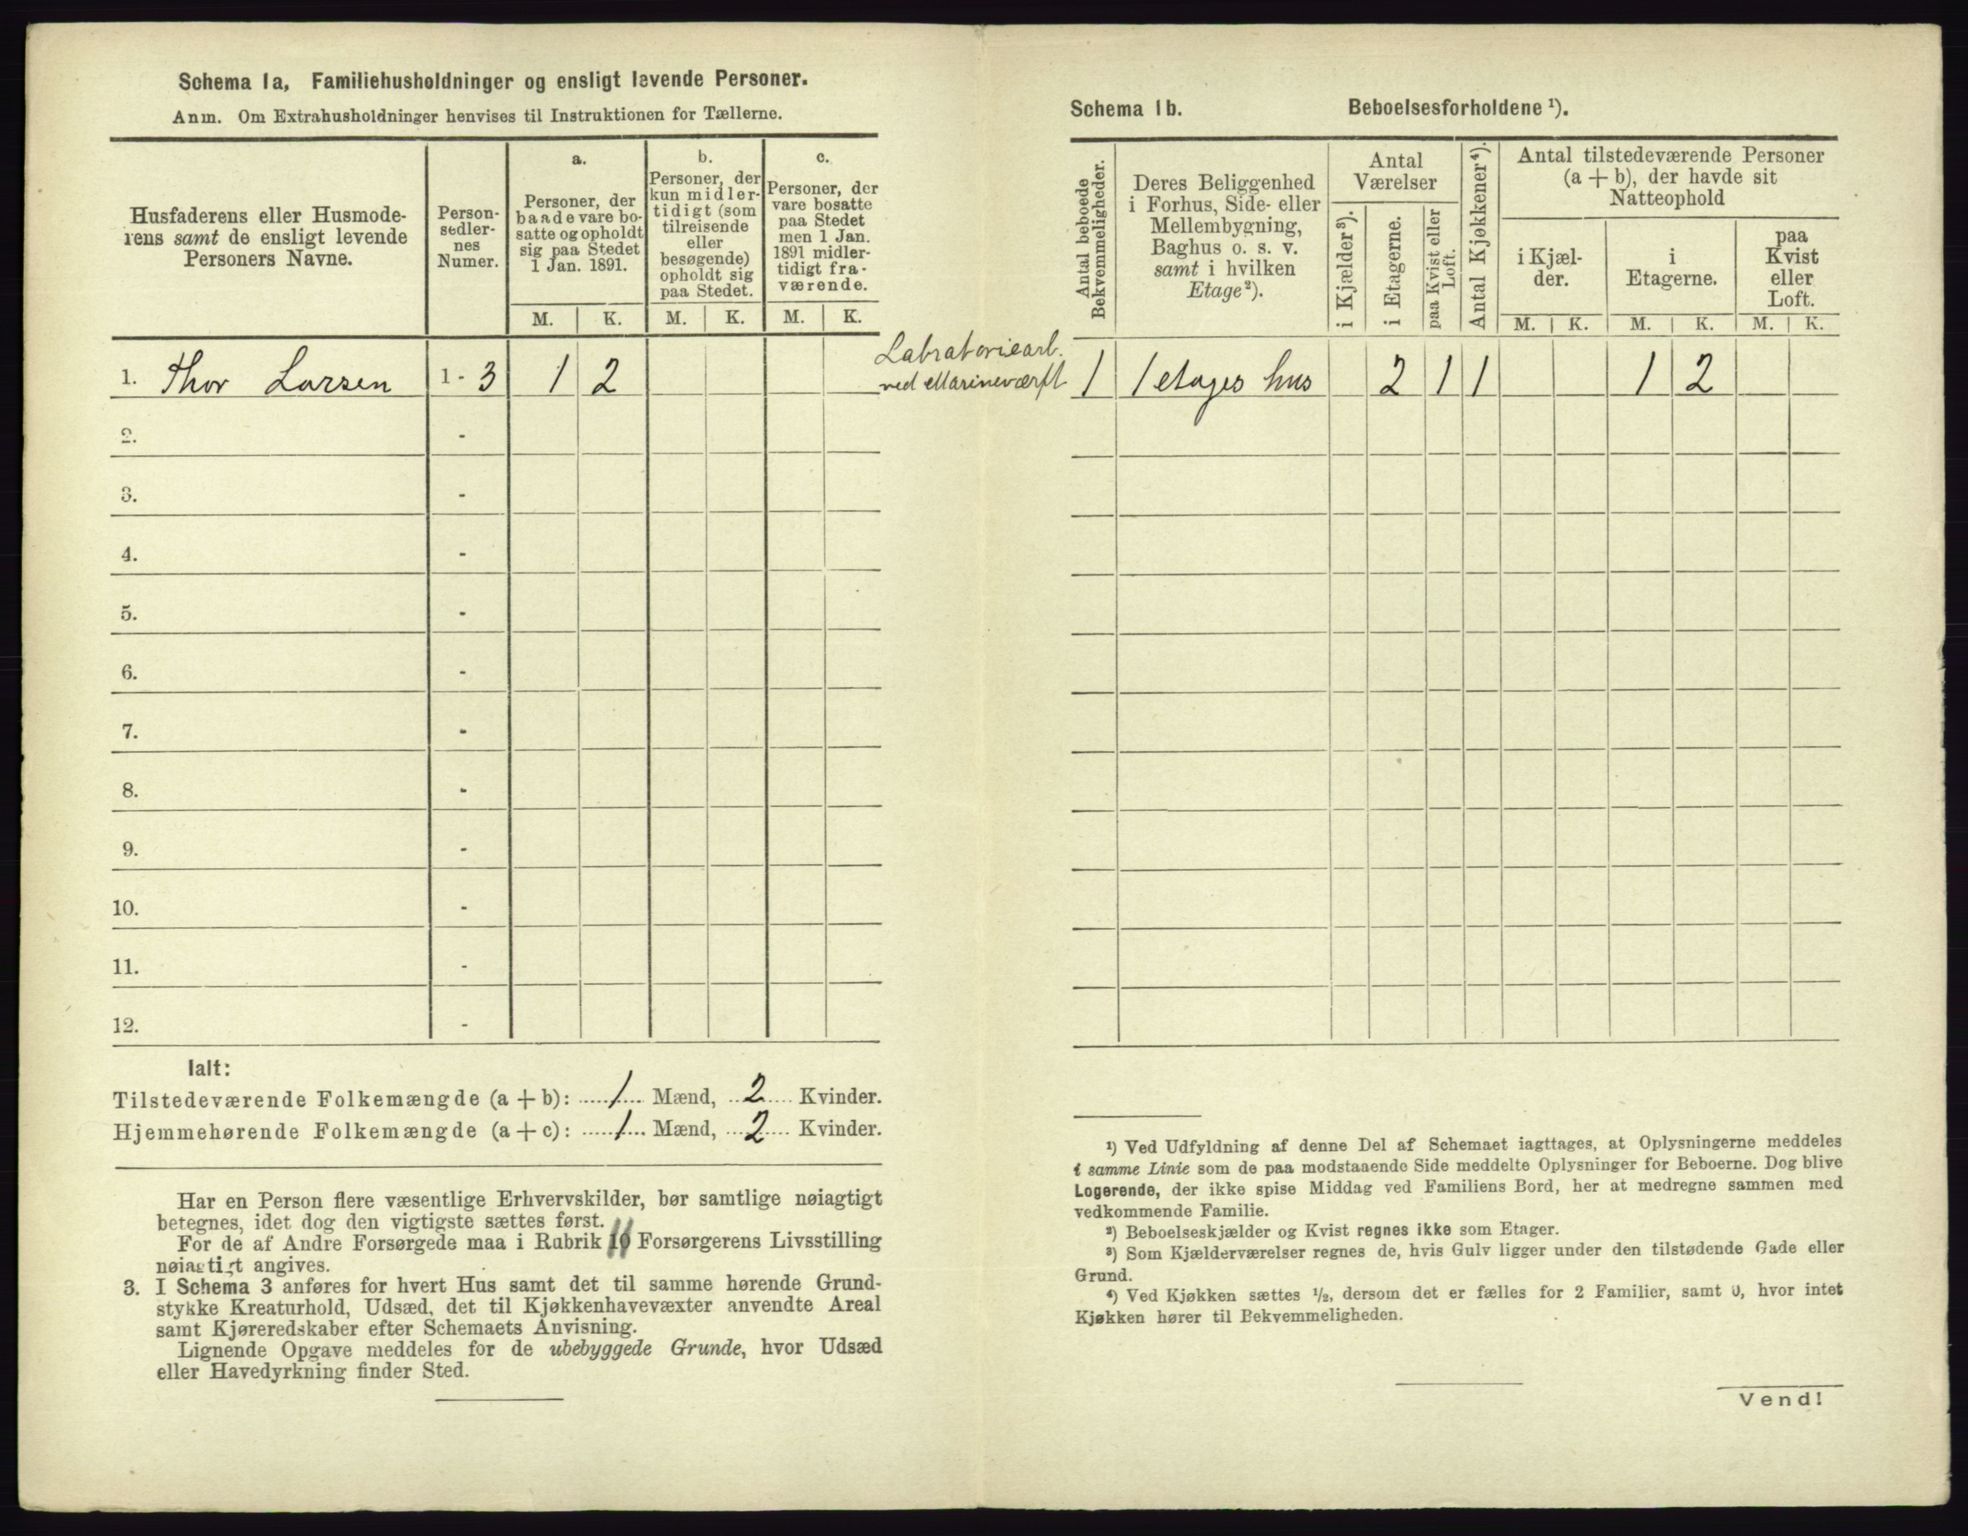 Schema 1a, Familiehusholdninger og ensligt levende Personer.
Anm. Om Extrahusholdninger henvises til Instruktionen for Tællerne.
Husfaderens eller Husmode-
rens samt de ensligt levende
Personers Navne.
Person-
sedler-
nes
Numer.
a.
Personer, der
baade vare bo-
satte og opholdt
sig paa Stedet
1 Jan. 1891.
b.
Personer, der
kun midler-
tidigt (som
tilreisende
eller
besøgende)
opholdt sig
paa Stedet.
c.
Personer, der
vare bosatte
paa Stedet
men 1 Jan.
1891 midler-
tidigt fra-
værende.
M. K. M. K. M. K.
1. Thor Larsen 1 - 3 1 2
2. -
3. -
4. -
5. -
6. -
7. -
8. -
9. -
10. -
11. -
12. -
Ialt:
Tilstedeværende Folkemængde (a + b): 1 Mænd, 2 Kvinder.
Hjemmehørende Folkemængde (a + c): 1 Mænd, 2 Kvinder.
Har en Person flere væsentlige Erhvervskilder, bør samtlige nøiagtigt
betegnes, idet dog den vigtigste sættes først.
For de af Andre Forsørgede maa i Rubrik 11 Forsørgerens Livsstilling
nøiagtigt angives.
3. I Schema 3 anføres for hvert Hus samt det til samme hørende Grund-
stykke Kreaturhold, Udsæd, det til Kjøkkenhavevæxter anvendte Areal
samt Kjøreredskaber efter Schemaets Anvisning.
Lignende Opgave meddeles for de ubebyggede Grunde, hvor Udsæd
eller Havedyrkning finder Sted.
Labratoriearb.
ved Marineværft
Schema 1b. Beboelsesforholdene ¹).
Antal beboede
Bekvemmeligheder.
Deres Beliggenhed
i Forhus, Side- eller
Mellembygning,
Baghus o. s. v.
samt i hvilken
Etage²).
Antal
Værelser
i Kjælder³).
i Etagerne.
paa Kvist eller
Loft.
Antal Kjøkkener⁴).
Antal tilstedeværende Personer
(a + b), der havde sit
Natteophold
i Kjæl-
der.
i
Etagerne.
paa
Kvist
eller
Loft.
M. K. M. K. M. K.
1 1 etages hus 2 1 1 1 2
¹) Ved Udfyldning af denne Del af Schemaet iagttages, at Oplysningerne meddeles
i samme Linie som de paa modstaaende Side meddelte Oplysninger for Beboerne. Dog blive
Logerende, der ikke spise Middag ved Familiens Bord, her at medregne sammen med
vedkommende Familie.
²) Beboelseskjælder og Kvist regnes ikke som Etager.
³) Som Kjælderværelser regnes de, hvis Gulv ligger under den tilstødende Gade eller
Grund.
⁴) Ved Kjøkken sættes ½, dersom det er fælles for 2 Familier, samt 0, hvor intet
Kjøkken hører til Bekvemmeligheden.
Vend!